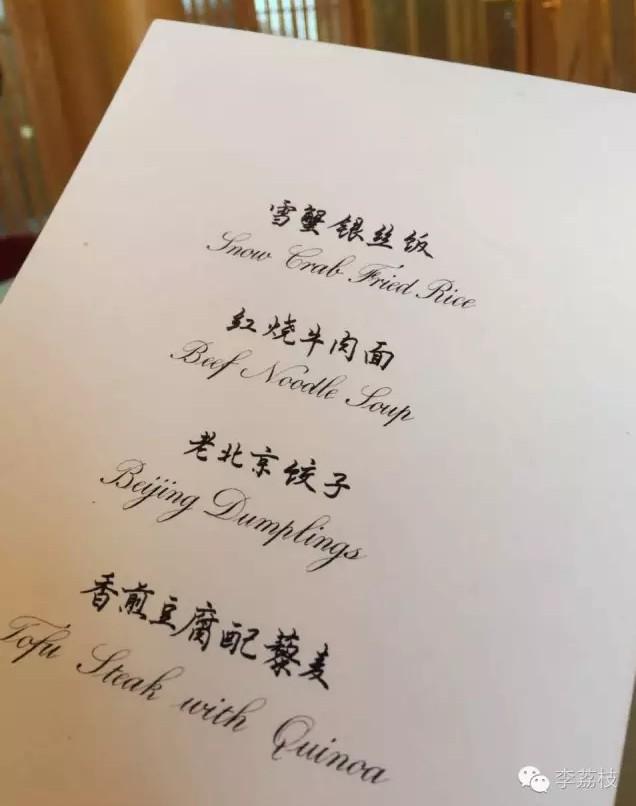 雪蟹银丝饭
Snow Crab Fried Rice
红烧牛肉面
Beef Noodle Soup
老北京饺子
Beijing Dumplings
香煎豆腐配藜麦
Tofu Steak with Quinoa
李荔枝